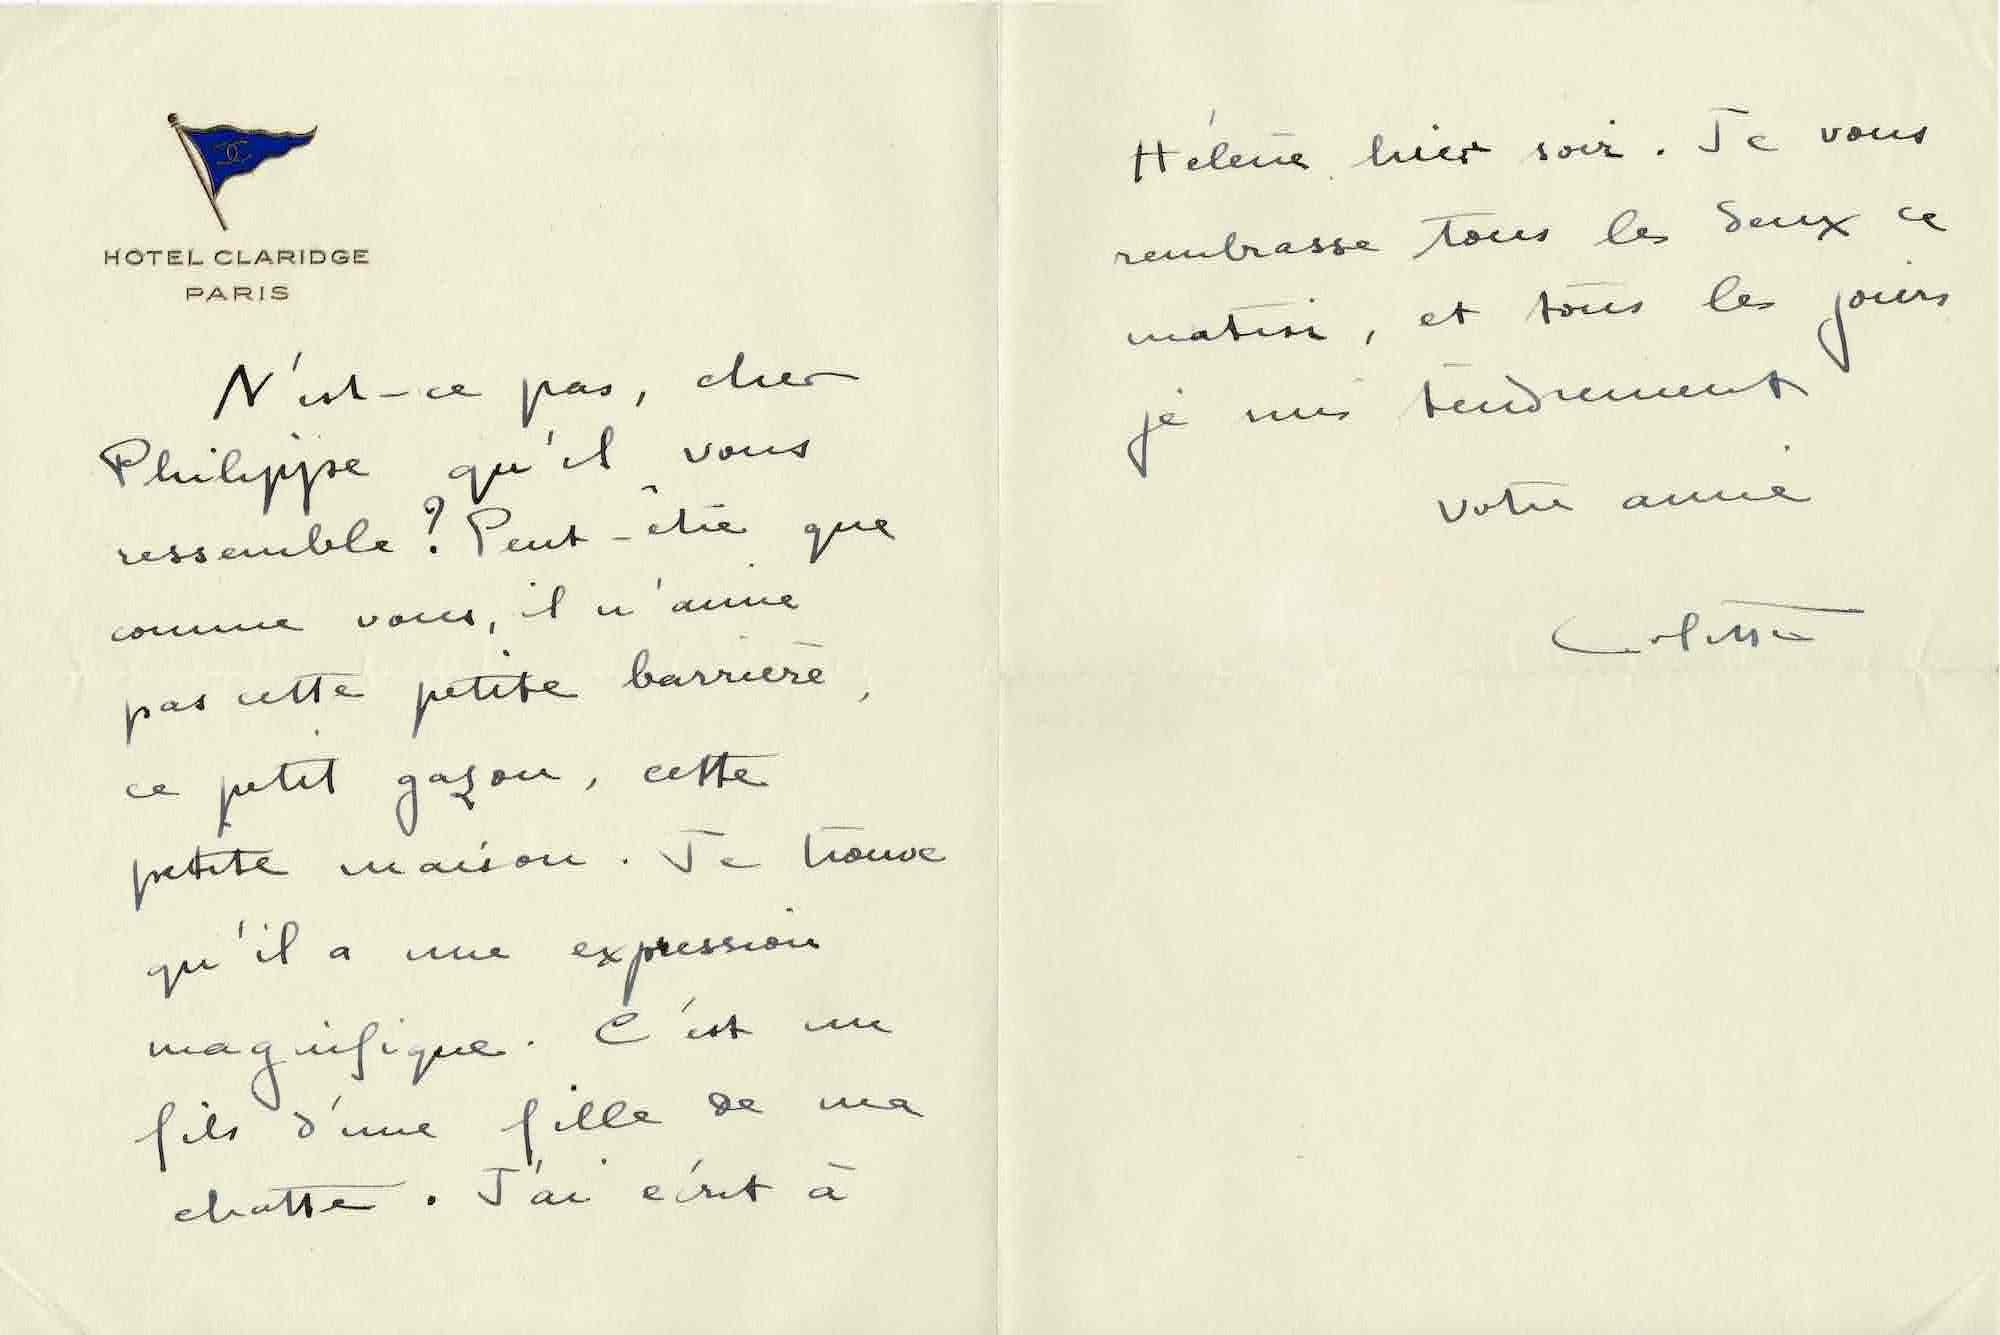 HOTEL CLARIDGE
PARIS
N'est-ce pas, cher
Philippe qu'il vous
ressemble ? Peut-être que
comme vous, il n'aime
pas cette petite barrière,
ce petit gazon, cette
petite maison. Je trouve
qu'il a une expression
magnifique. C'est un
fils d'une fille de ma
chatte. J'ai écrit à
Hélène hier soir. Je vous
rembrasse tous les deux ce
matin, et tous les jours
je suis tendrement
votre amie
Colette